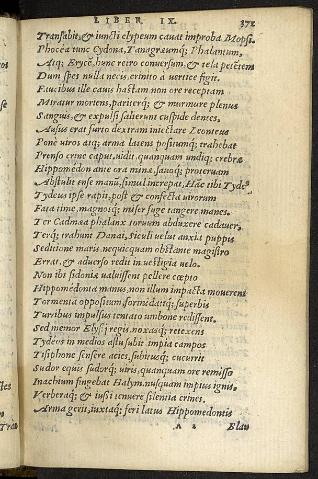 LIBER IX. 372
Transabit, & iuncti clypeum cauat improba Mopsi.
Phocëa tunc Cydona, Tanagræumq; Phalantum,
Atq; Erycē, hunc retro conuersum, & tela petētem
Dum spes nulla necis, crinito à uertice figit.
Faucibus ille cauis hastam non ore receptam
Miratur moriens, pariterq; & murmure plenus
Sanguis, & expulsi salierunt cuspide dentes.
Ausus erat furto dextram iniectare Leonteus
Ponè uiros atq; arma latens positumq; trahebat
Prenso crine caput, uidit, quanquam undiq; crebræ
Hippomedon ante ora minæ, sæuoq; proteruam
Abstulit ense manū, simul increpat, Hāc tibi Tyde⁹
Tydeus ipse rapit, post & confecta uirorum
Fata time, magnosq; miser fuge tangere manes.
Ter Cadmæa phalanx toruum abduxere cadauer,
Terq; trahunt Danai, Siculi uelut anxia puppis
Seditione maris nequicquam obstante magistro
Errat, & aduerso redit in uestigia uelo.
Non ibi sidoniæ ualuissent pellere cœpto
Hippomedonta manus, non illum impacta mouerent
Tormenta oppositum, formidataq; superbis
Turribus impulsus tentato umbone redissent.
Sed memor Elysij regis, noxasq; retexens
Tydeos in medios astu subit impia campos
Tisiphone sensere acies, subitusq; cucurrit
Sudor equis sudorq; uiris, quanquam ore remisso
Inachium fingebat Halym, nusquam impius ignis,
Verberaq; & iussi tenuere silentia crines.
Arma gerit, iuxtaq; feri latus Hippomedontis
A 2 Blan